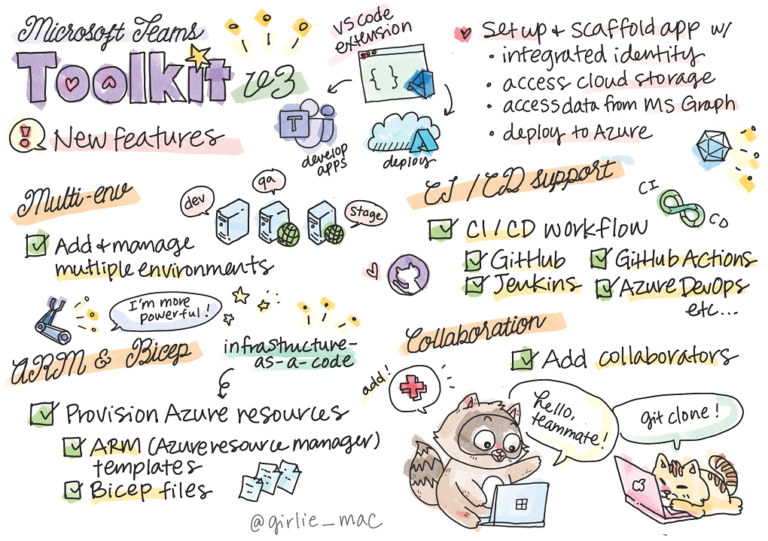 Microsoft Teams
Toolkit v3
! New features
VS Code
extension
{ }
T
develop
apps
deploy
Set up & scaffold app w/
• integrated identity
• access cloud storage
• access data from MS Graph
• deploy to Azure
Multi-env
dev
qa
stage
Add & manage
mutliple environments
CI/CD support
CI
CD
CI/CD workflow
GitHub
GitHub Actions
Jenkins
Azure DevOps
etc...
I'm more
powerful!
ARM & Bicep
infrastructure-
as-a-code
Provision Azure resources
ARM (Azure resource manager)
templates
Bicep files
Collaboration
Add collaborators
add!
hello,
teammate!
git clone!
@girlie_mac